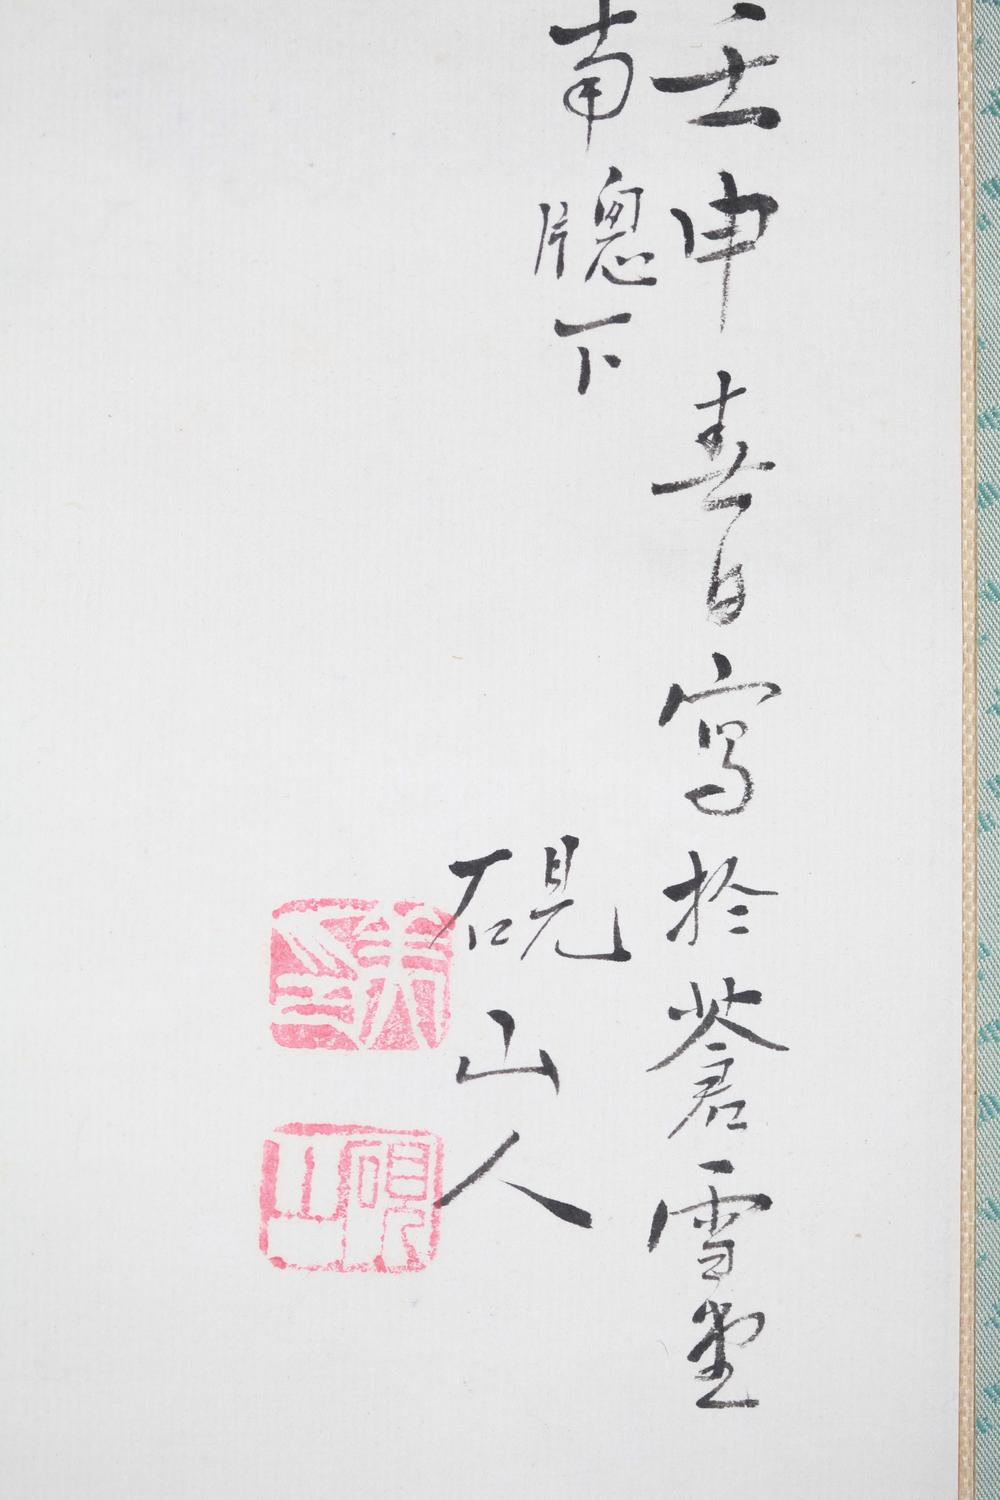 壬申春日寫於蒼雪堂
南牕下
硯山人
硯山